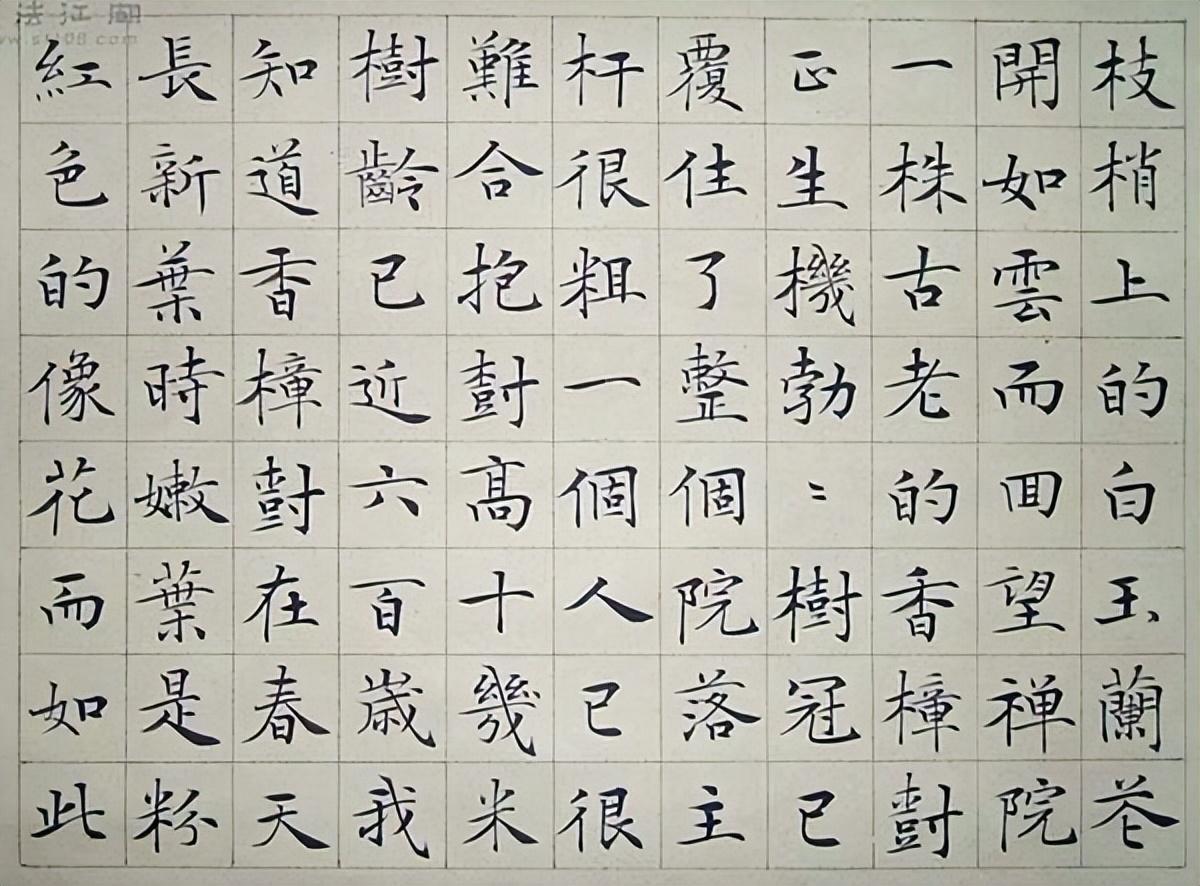 枝梢上的白玉蘭花
開如雲而囬望禅院
一株古老的香樟樹
正生機勃〻樹冠已
覆住了整個院落主
杆很粗一個人已很
難合抱樹高十幾米
樹齡已近六百歲我
知道香樟樹在春天
長新葉時嫩葉是粉
紅色的像花而如此
法江湖